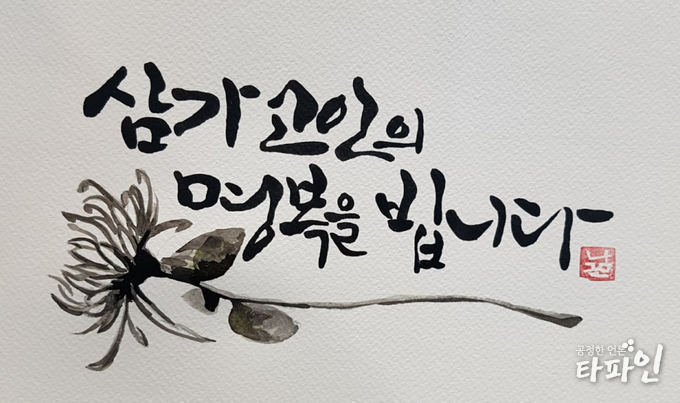 삼가 고인의
명복을 빕니다
공정한 언론
타파인